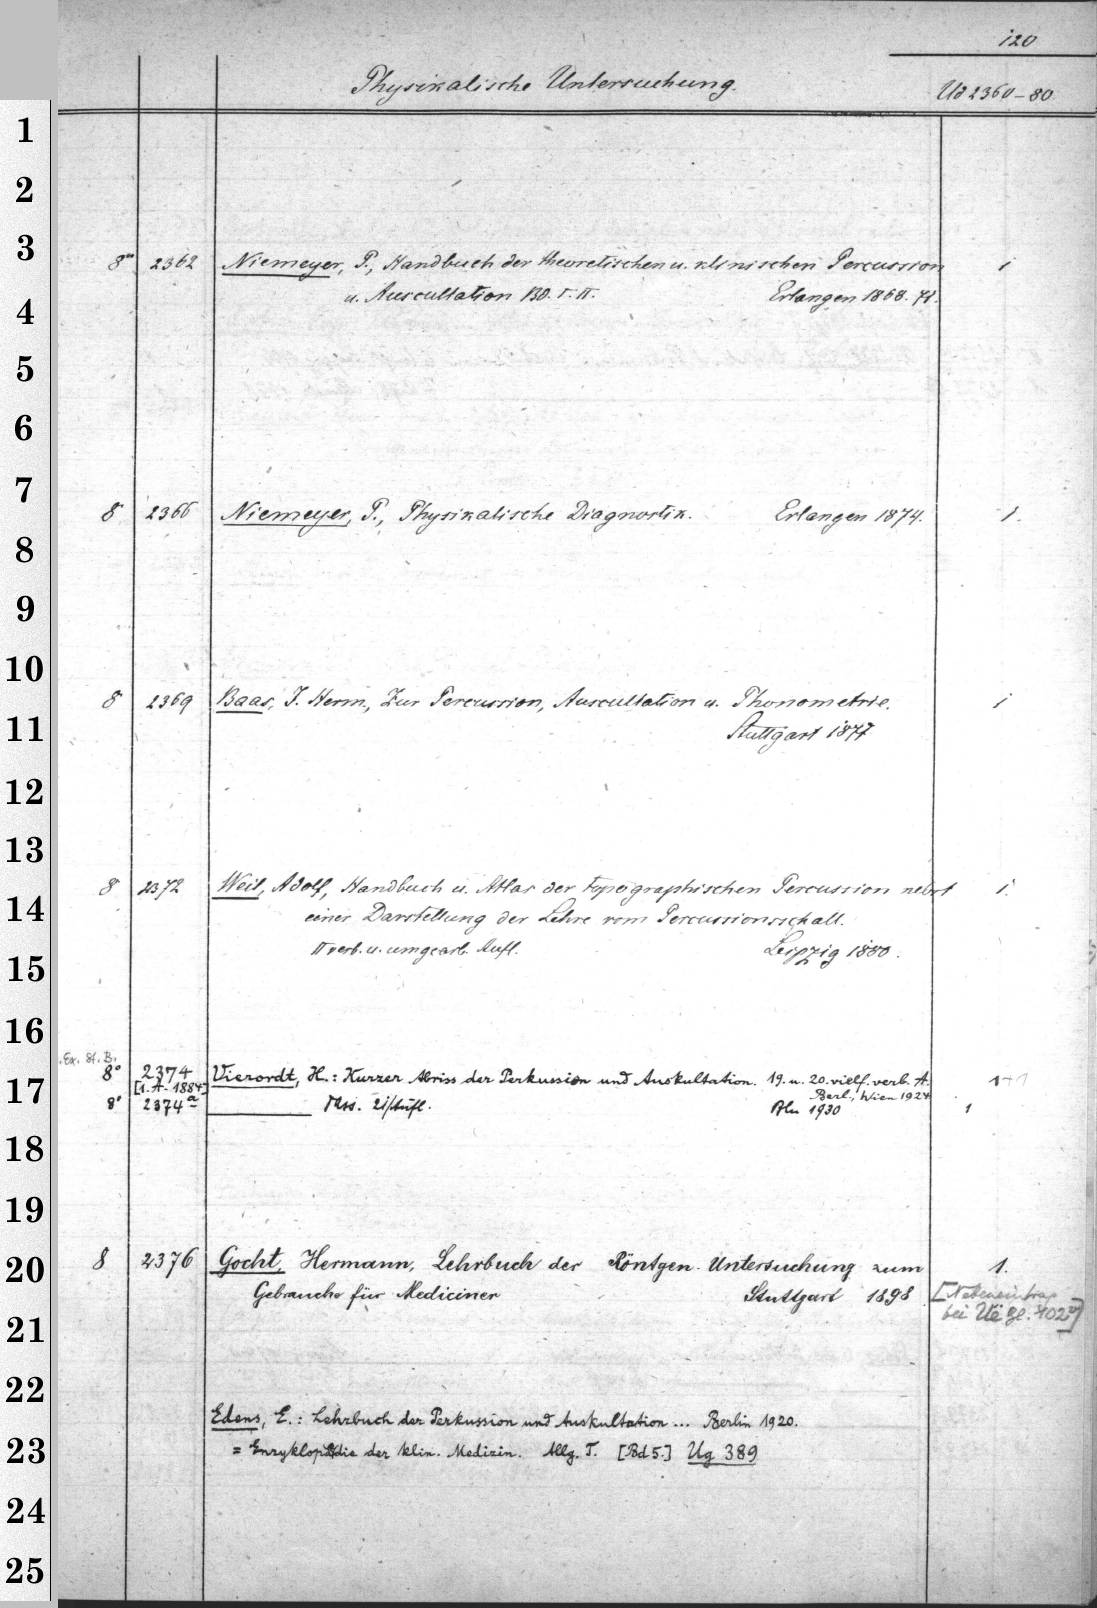 120
Physikalische Untersuchung.
Ud 2360-80
1
2
3
8° 2362 Niemeyer, P., Handbuch der theoretischen u. klinischen Percussion 1
u. Auscultation Bd. I. II. Erlangen 1868. 71.
4
5
6
7
8 2366 Niemeyer, P., Physikalische Diagnostik. Erlangen 1874. 1.
8
9
10
8 2369 Baas, J. Herm., Zur Percussion, Auscultation u. Phonometrie. 1
11
Stuttgart 1877
12
13
8 2372 Weil, Adolf, Handbuch u. Atlas der topographischen Percussion nebst 1.
14
einer Darstellung der Lehre vom Percussionsschall.
II verb. u. umgearb. Aufl. Leipzig 1880.
15
16
Ex. St. B.
8° 2374 Vierordt, H.: Kurzer Abriss der Perkussion und Auskultation. 19. u. 20. vielf. verb. A. 1+1
17
[1. A. 1884] Berl., Wien 1924
8° 2374a Dass. 21/Aufl. Bln 1930 1
18
19
8 2376 Gocht, Hermann, Lehrbuch der Röntgen-Untersuchung zum 1.
20
Gebrauche für Mediciner Stuttgart 1898 [Nebeneintrag
bei Ue
21
22
Edens, E.: Lehrbuch der Perkussion und Auskultation ... Berlin 1920.
23
= Enzyklopädie der klin. Medizin. Allg. T. [Bd 5.] Ug 389
24
25